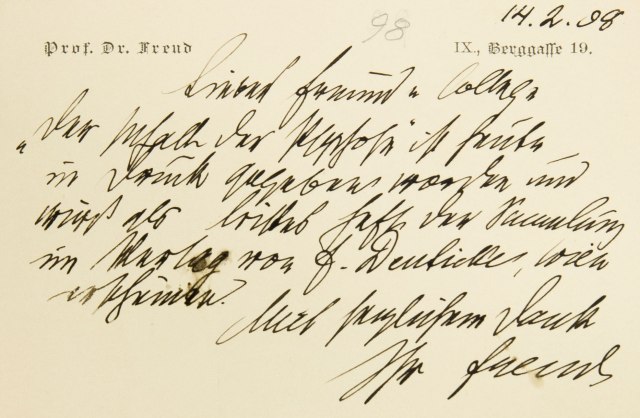 14.2.08
98
Prof. Dr. Freud
IX., Berggasse 19.
Lieber Freund u College
„Der Inhalt der Psychose" ist heute
in Druck gegeben worden und
wird als drittes Heft der Sammlung
im Verlag von F. Deuticke, Wien
erscheinen.
Mit herzlichem Dank
Ihr Freud